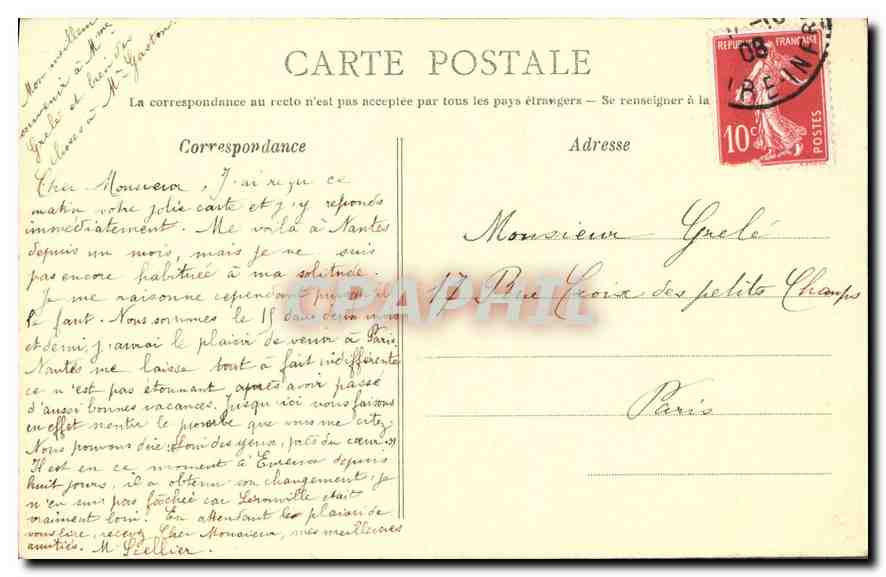 Mon meilleur
souvenir à Mme
Grelé et bien des
choses à Mr Gaston.
CARTE POSTALE
La correspondance au recto n'est pas acceptée par tous les pays étrangers — Se renseigner à la
Correspondance
Adresse
REPUBLIQUE FRANÇAISE
10c
POSTES
08
INFRE
Cher Monsieur, J'ai reçu ce
matin votre jolie carte et j'y réponds
immédiatement. Me voilà à Nantes
depuis un mois, mais je ne suis
pas encore habituée à ma solitude.
Je me raisonne cependant puisqu'il
le faut. Nous sommes le 15 dans deux mois
et demi, j'aurai le plaisir de venir à Paris.
Nantes me laisse tout à fait indifférente
ce n'est pas étonnant après avoir passé
d'aussi bonnes vacances. Jusqu'ici nous faisons
en effet mentir le proverbe que vous me citez.
Nous pouvons dire: Loin des yeux, près du cœur."
Il est en ce moment à Evreux depuis
huit jours, il a obtenu son changement, je
n'en suis pas fâchée car Lerouville était
vraiment loin. En attendant le plaisir de
vous lire, recevez Cher Monsieur, mes meilleures
amitiés. M Scellier.
Monsieur Grelé
17 Rue Croix des petits Champs
Paris
CPAPHIL